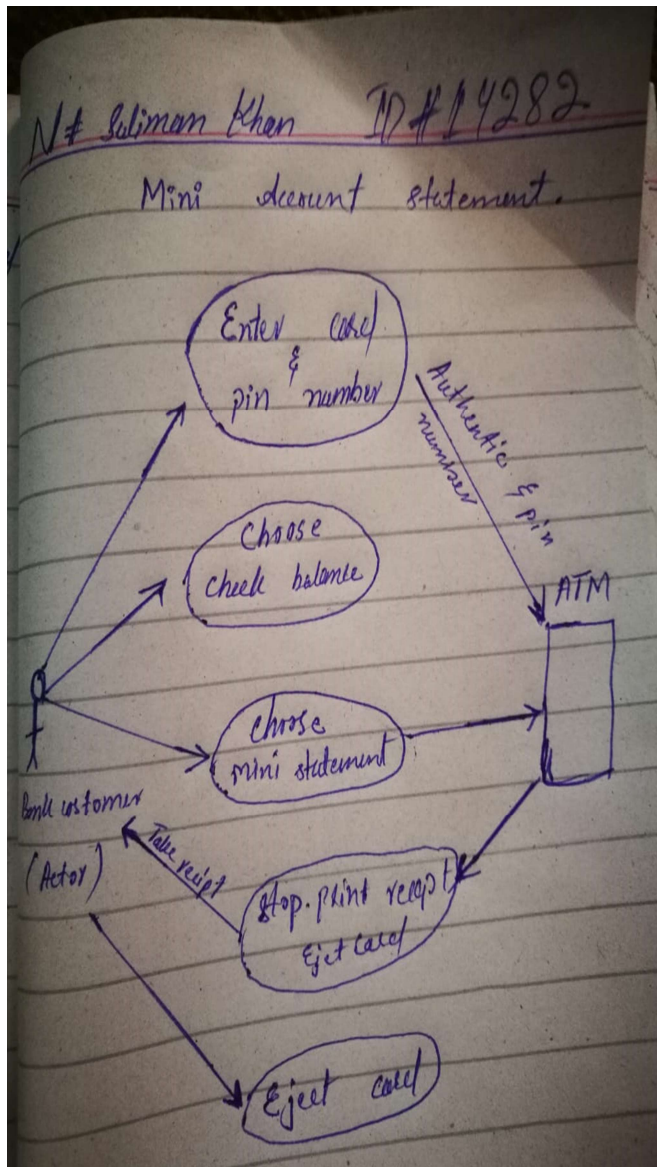 N# Suliman Khan ID#14282
Mini Account statement.
Enter card
&
pin number
Authentic & pin
number
Choose
check balance
ATM
Choose
mini statement
Bank customer
(Actor)
Take recipt
stop.print recipt
Eject card
Eject card